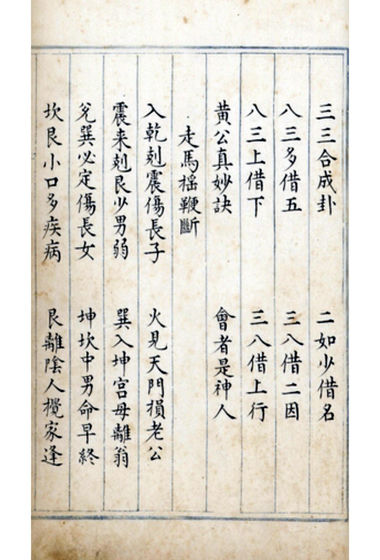 三三合成卦　二如少借名
八三多借五　三八借二因
八三上借下　三八借上行
黄公真妙訣　會者是神人
走馬摇鞭斷
入乾剋震傷長子　火見天門損老公
震来剋艮少男弱　巽入坤宫母離翁
兑巽必定傷長女　坤坎中男命早終
坎艮小口多疾病　艮離陰人攪家逢